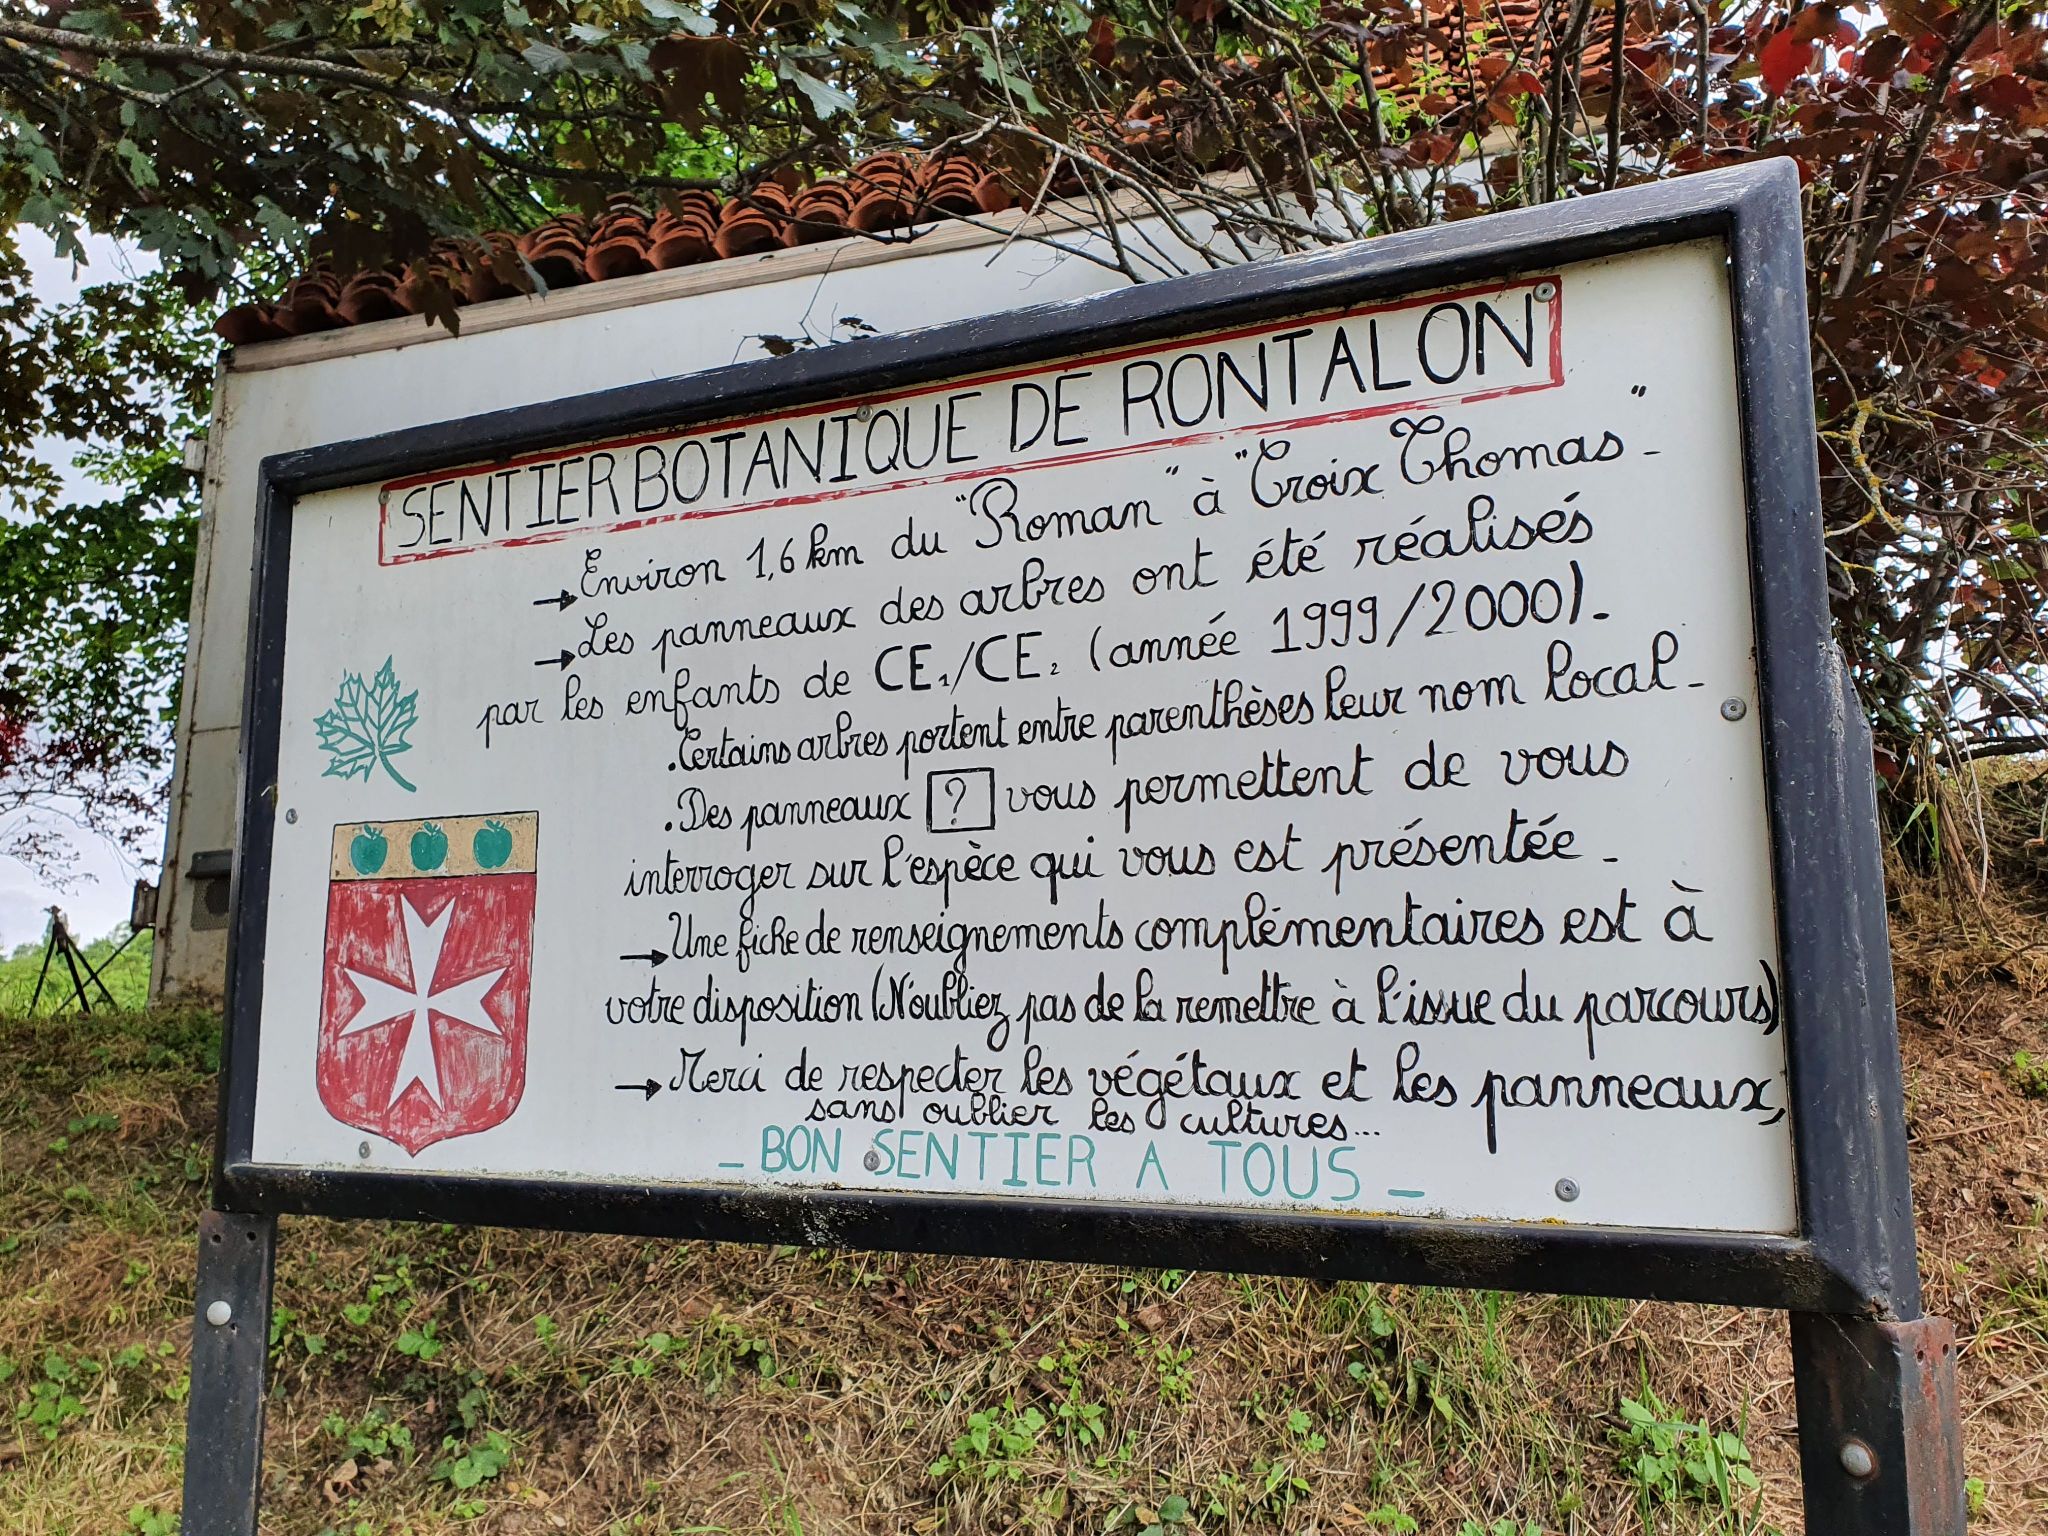 SENTIER BOTANIQUE DE RONTALON
→ Environ 1,6 km du "Roman" à "Croix Thomas" -
→ Les panneaux des arbres ont été réalisés
par les enfants de CE1/CE2 (année 1999/2000). -
. Certains arbres portent entre parenthèses leur nom local -
. Des panneaux ? vous permettent de vous
interroger sur l'espèce qui vous est présentée -
→ Une fiche de renseignements complémentaires est à
votre disposition (N'oubliez pas de la remettre à l'issue du parcours)
→ Merci de respecter les végétaux et les panneaux,
sans oublier les cultures...
- BON SENTIER A TOUS -